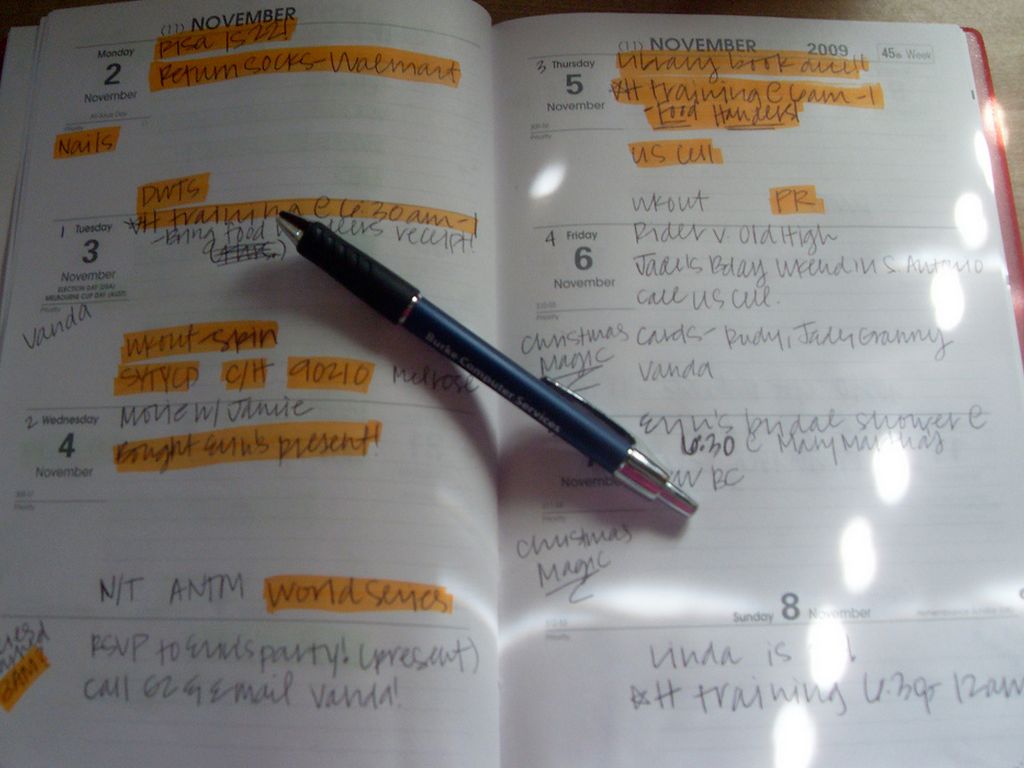 (11) NOVEMBER
Risa is 22!
Monday
2
November
Return socks-Walmart
Nails
DWTS
** training @ 6:30am-1
1 Tuesday
3
November
-Bring food receipt!
ELECTION DAY (USA)
MELBOURNE CUP DAY (AUST)
Priority
Vanda
Wkout-spin
SYTYCD C/H 90210 Melrose
2 Wednesday
4
November
Movie w/ Jamie
Bought Erin's present!
Priority
N/T ANTM World Series
RSVP to Erin's party! (present)
call GZ & email Vanda!
8AM!
(11) NOVEMBER 2009 45th Week
3 Thursday
5
November
Library book due!!
** training @ 6am-1
-Food Handlers!
Priority
US Cell
wkout PR
4 Friday
6
November
Rider v. Old High
Jade's Bday wkend in S. Antonio
call US Cell.
Priority
Christmas
Magic
Cards- Rudy, Jade, Granny
Vanda
Erin's bridal shower @
6:30 @ Mary Martha's
BC
November
Priority
Christmas
Magic
Sunday 8 November
Priority
Linda is
** training 6:30
Burke Computer Services